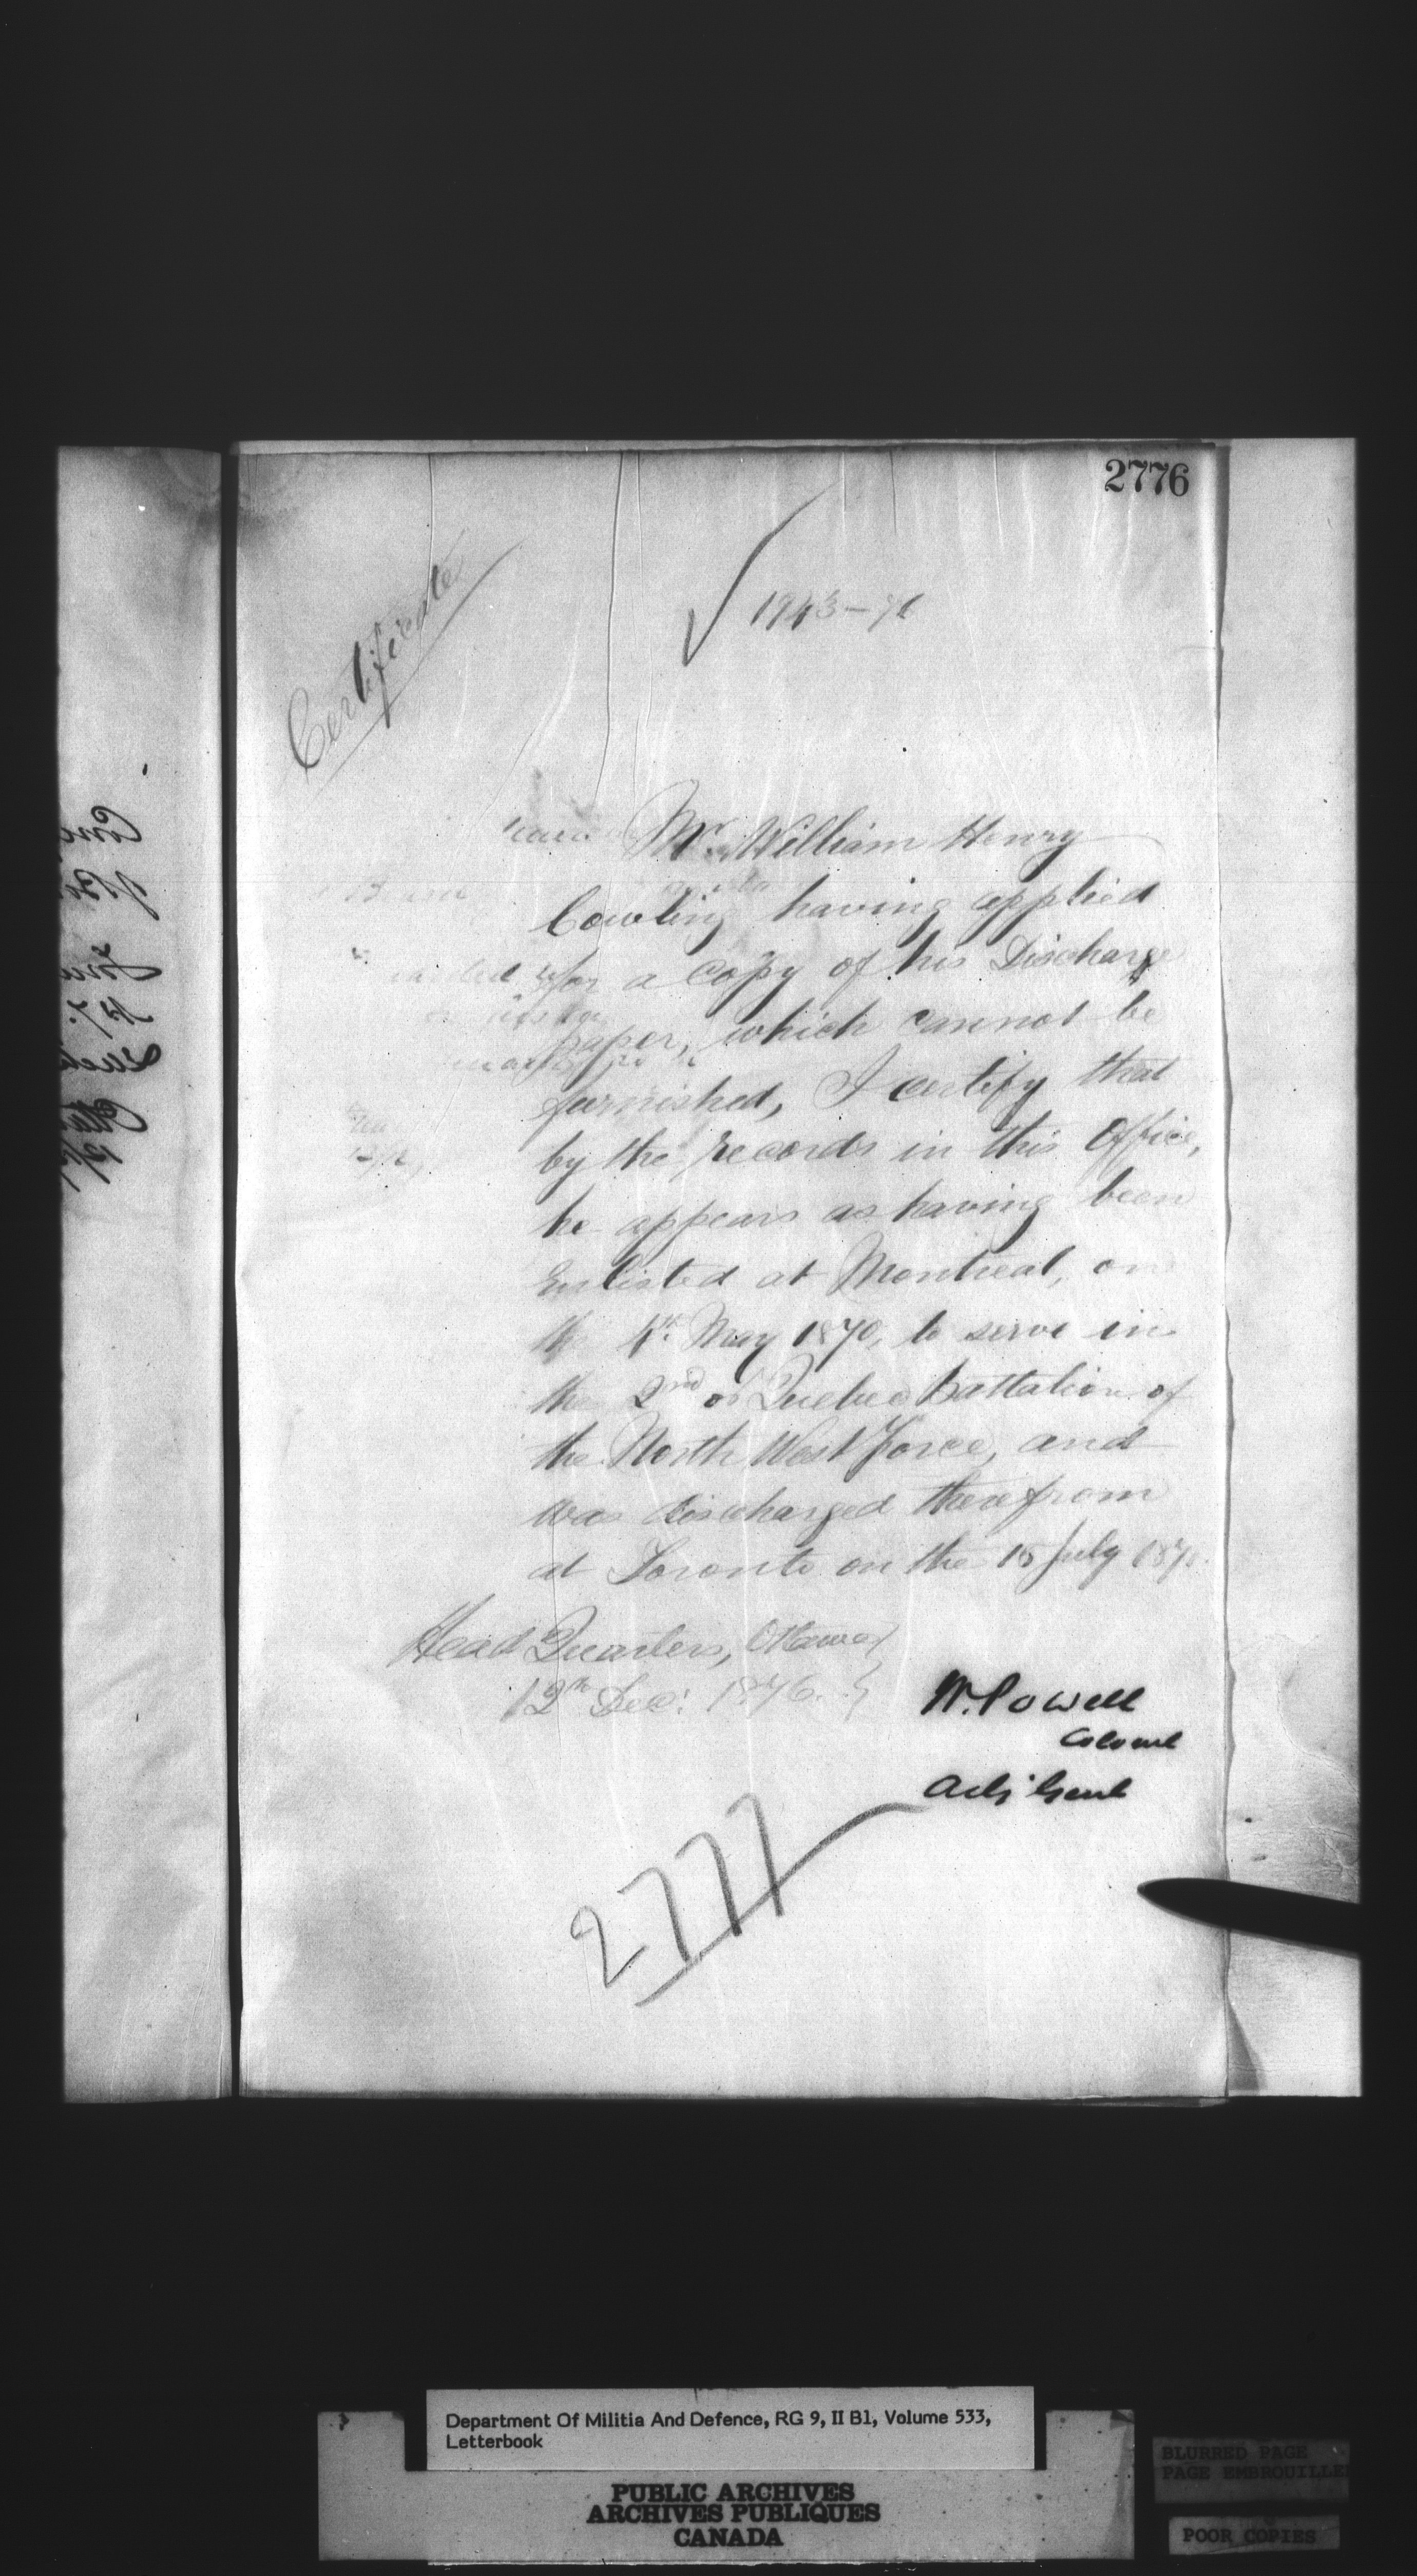 2776
Certificate
Mr. William Henry
Cowling having applied
for a Copy of his Discharge
paper, which cannot be
furnished, I certify that
by the records in this Office,
he appears as having been
Enlisted at Montreal, on
the 4th May 1870, to serve in
the 2nd or Quebec Battalion of
the North West Force, and
was discharged therefrom
at Toronto on the 15 July
Head Quarters, Ottawa
12th Dec: 1876.
W. Powell
Colonel
Adj Genl
2777
Department Of Militia And Defence, RG 9, II B1, Volume 533,
Letterbook
PUBLIC ARCHIVES
ARCHIVES PUBLIQUES
CANADA
BLURRED PAGE
PAGE EMBROUILLE
POOR COPIES